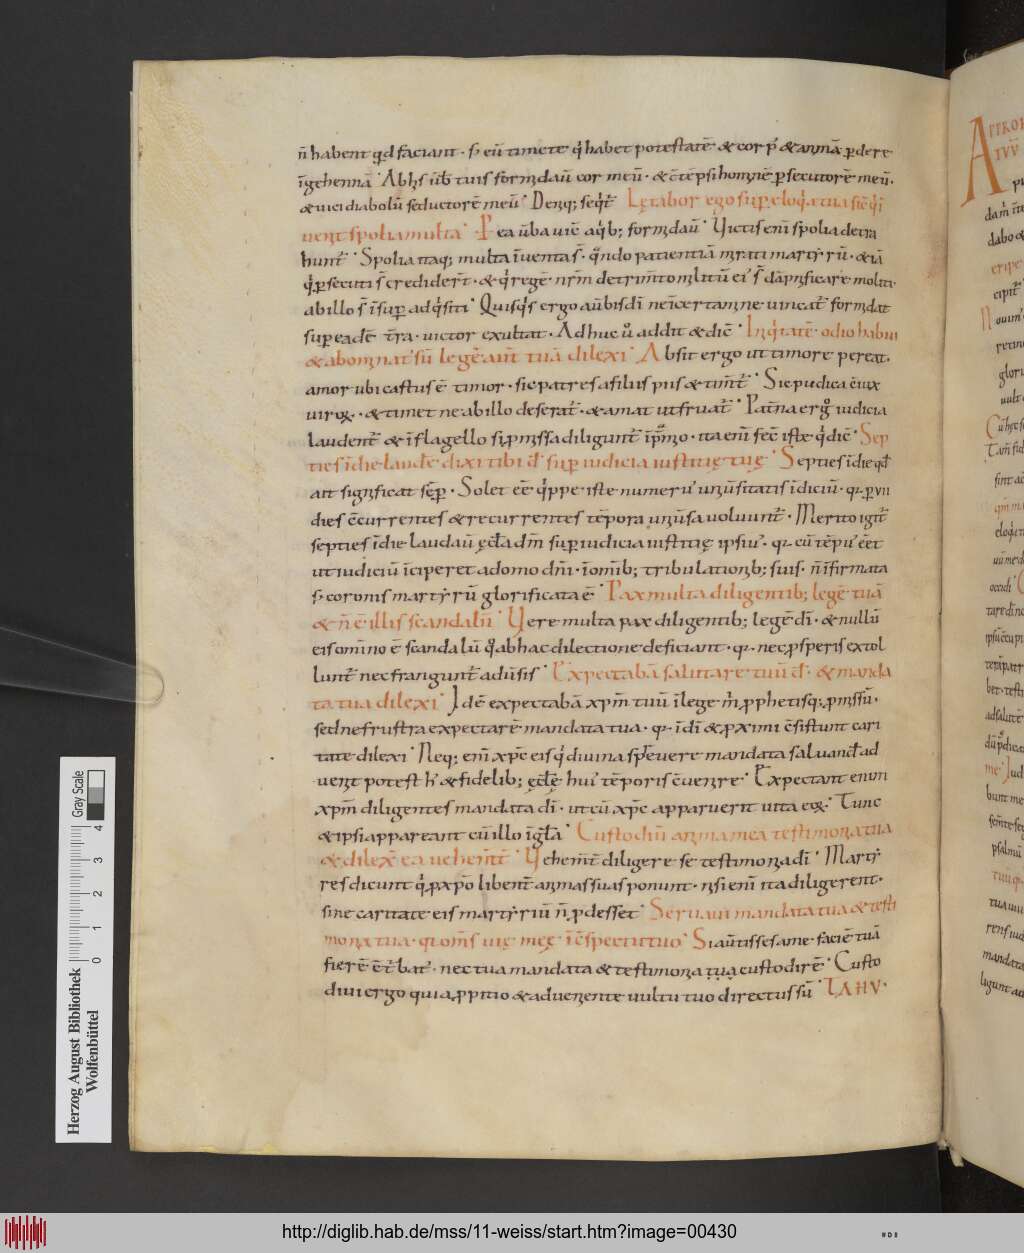 n̄ habent qd faciant · s; eū timete q̇ habet potestatē & corp' & animā p̱dere
īgehennā · Ab hįs ūb tuis formidaū cor meū · & c̄tēpsi hominē p̱secutorē meū ·
& uici diabolū seductorē meū · Deniq; seq̇t̄ Lętabor ego sup̱ eloq̇a tua sic̄ q̇ i
uenit spolia multa · Per ea ūba uic̄ a quib; formidaū · Victis enī spolia detra
hunt̄ · Spolia itaq; multa īuenta s̄ · q̇ndo patientiā mirati martyrū · & iā
q̇ p̱secuti s̄ credidert̄ · & q̇ regē nr̄m detrim̄to militū ei' s̄ dāpnificare moliti
ab illo s̄ īsup̱ adq̇siti · Quisq̇s ergo aūbis dī ne īcertamine uincat̄ formidat
sup̱ eadē tr̄ra · uictor exultat · Adhuc ū addit & dic̄ · Iniq̇tatē odio habui
& abominat' sū legē aut̄ tuā dilexi · Absit ergo ut timore pereat ·
amor ubi castus ē timor · sic patres a filiis piis & tim̄t̄ · Sic pudica c̄iux
uirox · & timet ne ab illo deserat̄ · & amat ut fruat̄ · Pat̄na erg̊ iudicia
laudent̄ & ī flagello si p̱missa diligunt̄ īp̄mio · ita enī fec̄ iste q̇ dic̄ · Sep
ties ī die laudē dixi tibi d̄ sup̱ iudicia iustitię tuę · Septies ī die qđ
ait significat sēp̱ · Solet eē q̇ppe iste numer' uniūsitatis īdiciū · qi p̱ vii
dies c̄currentes & recurrentes tēpora uniūsa uoluunt̄ · Merito igit̄
septies ī die laudaū ęcl̄a dm̄ sup̱ iudicia iustitię ipsiu' · qi cū tēpu' eēt
ut iudiciū īciperet a domo dn̄i · īomīb; tribulationib; suis · n̄ īfirmata
s; coronis martyrū glorificata ē · Pax multa diligentib; legē tuā
& n̄ ē illis scandalū · Vere multa pax diligentib; legē dī · & nullū
eis omīno ē scandalū q̊ ab hac dilectione deficiant · qi nec p̱speris extol
lunt̄ nec frangunt̄ adūsis · Expectabā salutare tuū d̄ · & manda
ta tua dilexi · Idē expectabā xpm̄ tuū ī lege m̄ p̱phetisq; p̱missū ·
sed ne frustra expectarē mandata tua · qi ī dī & p̱ximi c̄sistunt cari
tate dilexi · Neq; enī xpc̄ eis q̇ diuina sp̄euere mandata saluand̄ ad
uenit potest h' & fidelib; ęcl̄ę hui' tēporis c̄uenire · Expectant enim
xpm̄ diligentes mandata dī · ut cū xpc̄ apparuerit uita eox · Tunc
& ipsi appareant cū illo ī gl̄a · Custodiū anima mea testimonia tua
& dilex̄ ea uehem̄t̄ · Vehem̄t̄ diligere se testimonia dī · Martȳ
res dicunt q̇ p̱ xpo̅ libent̄ animas suas ponunt · nisi enī ita diligerent ·
sine caritate eis martyriū n̄ p̱desset · Seruaui mandata tua & testi
monia tua · qi om̄s uię meę ī c̄spectu tuo · Si aūtisses a me faciē tuā
fierē c̄t̄bat' · nec tua mandata & testimonia tua custodirē · Custo
diui ergo quia p̱pitio & adueniente uultu tuo directus sū · TAHV ·
Herzog August Bibliothek
Wolfenbüttel
Gray Scale
0 1 2 3 4
http://diglib.hab.de/mss/11-weiss/start.htm?image=00430